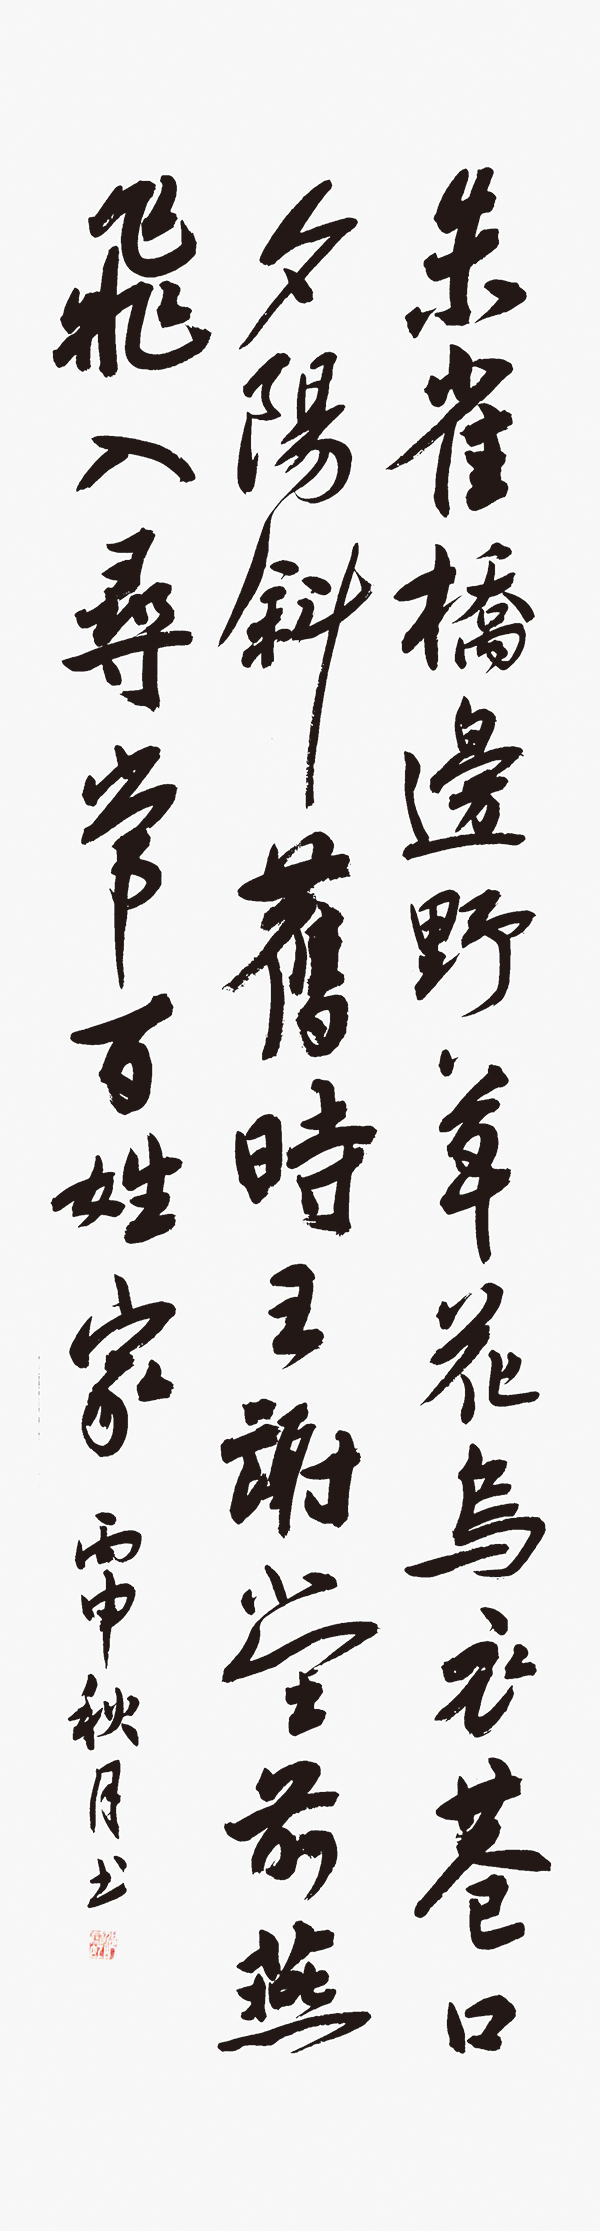 朱雀橋邊野草花烏衣巷口
夕陽斜舊時王謝堂前燕
飛入尋常百姓家
丙申秋月书